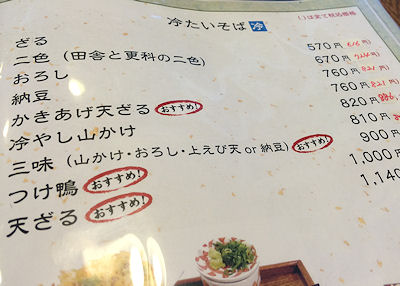 冷たいそば 冷
( )は全て税込価格
ざる 570円 (616円)
二色（田舎と更科の二色） 670円 (724円)
おろし 760円 (821円)
納豆 760円 (821円)
かきあげ天ざる おすすめ! 820円 (886
冷やし山かけ 810円
三味（山かけ・おろし・上えび天or納豆） おすすめ! 900円
つけ鴨 おすすめ! 1,000円
天ざる おすすめ! 1,140